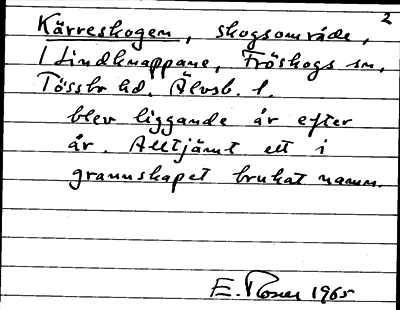 2
Kärreskogen, skogsområde,
i Lindknappane, Fröskogs sn,
Tössbo hd. Älvsb. l.
blev liggande år efter
år. Alltjämt ett i
grannskapet brukat namn.
E. Rosen 1965